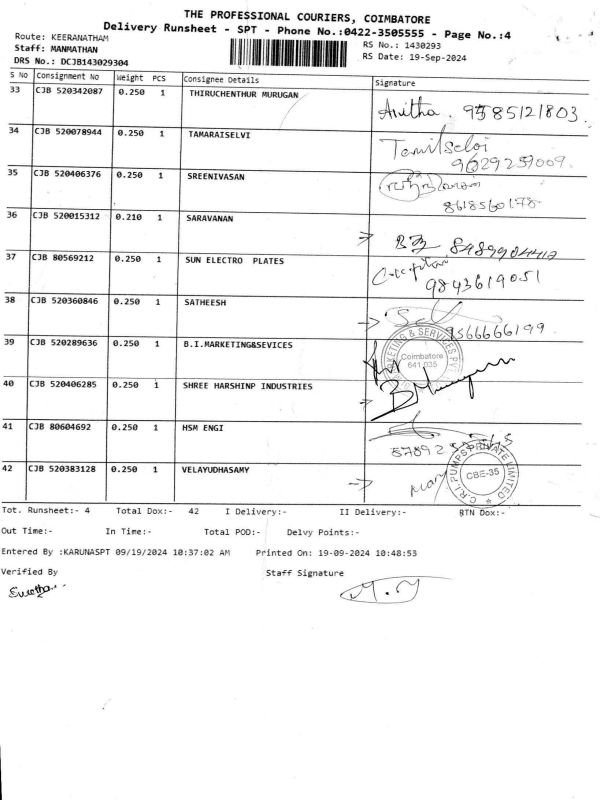 THE PROFESSIONAL COURIERS, COIMBATORE
Delivery Runsheet - SPT - Phone No.:0422-3505555 - Page No.:4
Route: KEERANATHAM
RS No.: 1430293
Staff: MANMATHAN
RS Date: 19-Sep-2024
DRS No.: DCJB143029304
S No Consignment No Weight PCS Consignee Details Signature
33 CJB 520342087 0.250 1 THIRUCHENTHUR MURUGAN
Anitha. 9585121803.
34 CJB 520078944 0.250 1 TAMARAISELVI
Tamilselvi
9629259009.
35 CJB 520406376 0.250 1 SREENIVASAN
8618560178
36 CJB 520015312 0.210 1 SARAVANAN
37 CJB 80569212 0.250 1 SUN ELECTRO PLATES
9843619051
38 CJB 520360846 0.250 1 SATHEESH
9566666199
39 CJB 520289636 0.250 1 B.I.MARKETING&SEVICES
MARKETING & SERVICES
Coimbatore
641 035
40 CJB 520406285 0.250 1 SHREE HARSHINP INDUSTRIES
41 CJB 80604692 0.250 1 HSM ENGI
42 CJB 520383128 0.250 1 VELAYUDHASAMY
C.R.I. PUMPS PRIVATE LIMITED
CBE-35
Tot. Runsheet:- 4 Total Dox:- 42 I Delivery:- II Delivery:- RTN Dox:-
Out Time:- In Time:- Total POD:- Delvy Points:-
Entered By :KARUNASPT 09/19/2024 10:37:02 AM Printed On: 19-09-2024 10:48:53
Verified By Staff Signature